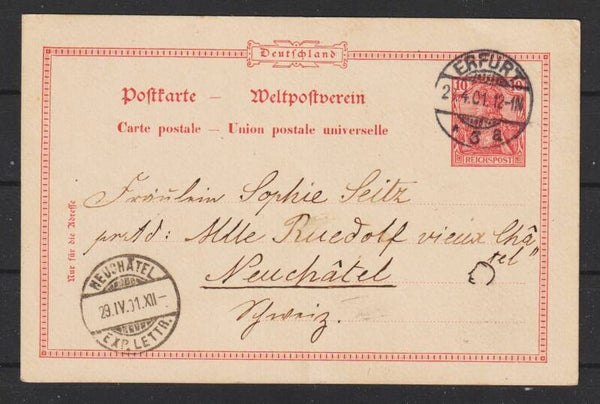 Deutschland
Postkarte – Weltpostverein
Carte postale – Union postale universelle
ERFURT
4.01.12-1N.
* 3 a
10 10
REICHSPOST
Nur für die Adresse
Fräulein Sophie Seitz
Mlle Ruedolf vieux Châ
tel"
Neuchâtel
Schweiz.
NEUCHÂTEL
29.IV.01.XII–
EXP. LETTR.